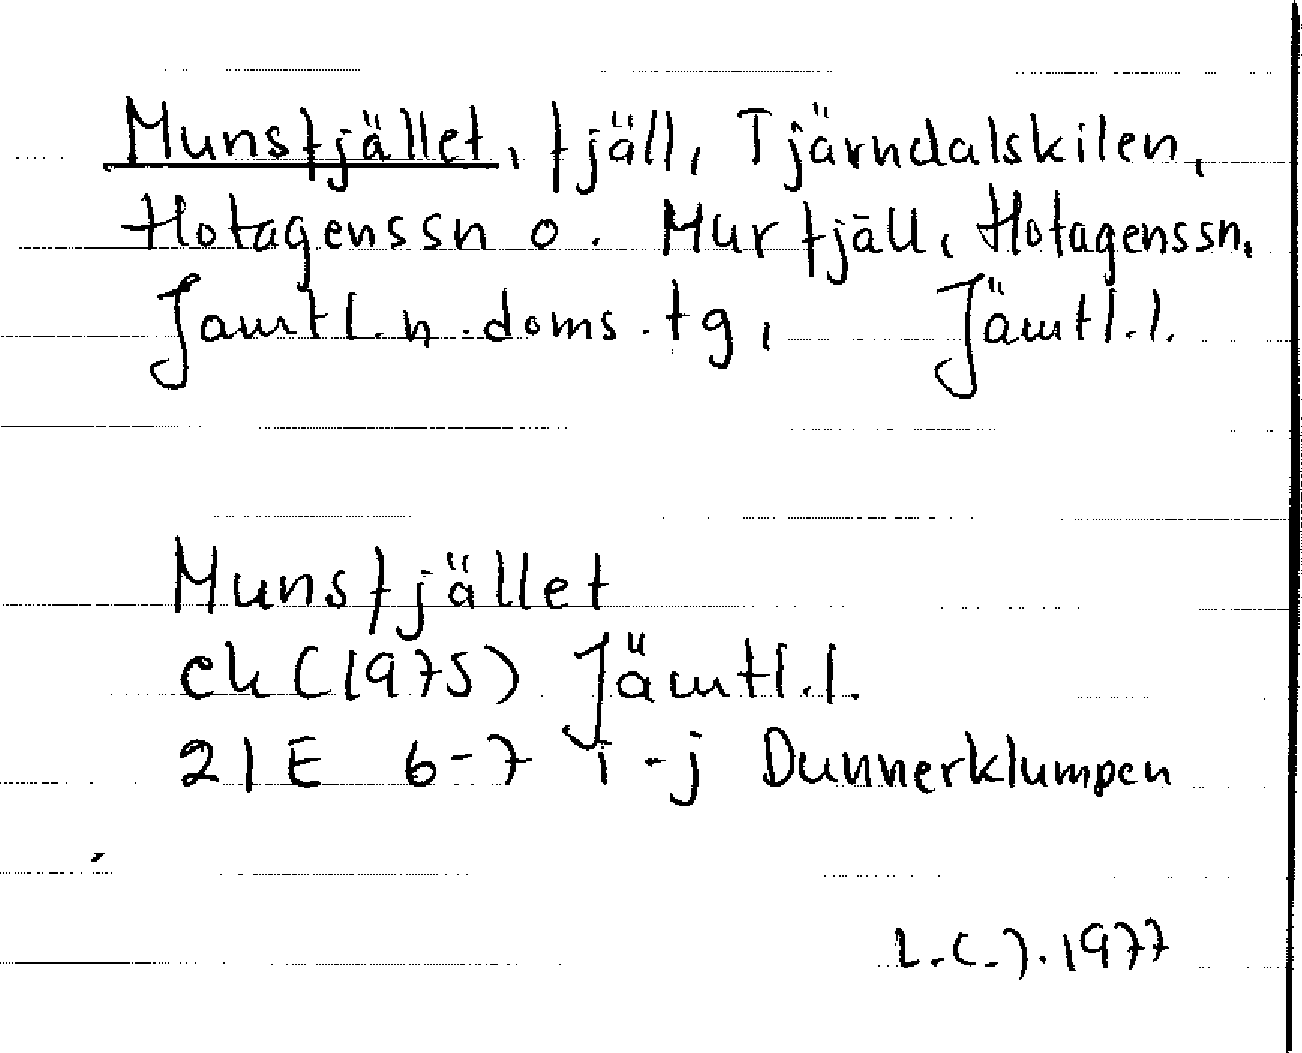 Munsfjället, fjäll, Tjärndalskilen,
Hotagenssn o. Murfjäll, Hotagenssn,
Jämtl. n. doms. tg, Jämtl. l.
Munsfjället
ek (1975) Jämtl. l.
21E 6-7 i-j Dunnerklumpen
L.C.J. 1977